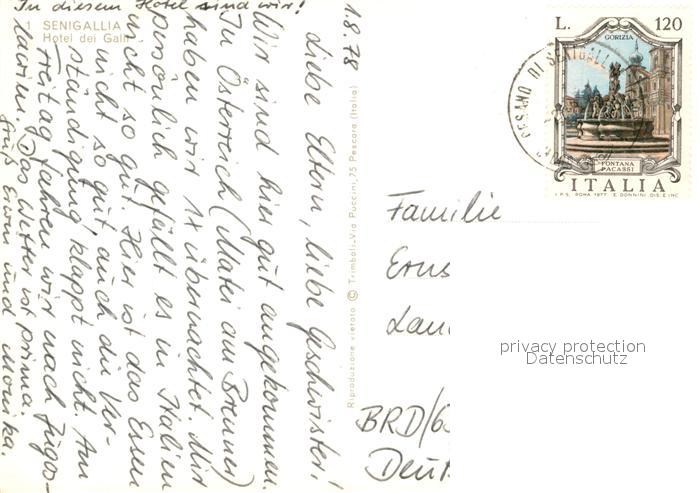 In diesem Hotel sind wir!
1 SENIGALLIA
Hotel dei Galli
1.8.78
Liebe Eltern, liebe Geschwister!
Wir sind hier gut angekommen.
In Österreich (Matei am Brenner)
haben wir 1x übernachtet. Mir
persönlich gefällt es in Italien
nicht so gut. Hier ist das Essen
nicht so gut, auch die Ver-
ständigung klappt nicht. Am
Freitag fahren wir nach Jugos-
lawien. Das Wetter ist prima.
Gruß Erwin und Monika.
Riproduzione vietata © Trimboli-Via Puccini, 75 Pescara (Italia)
L. 120
GORIZIA
FONTANA
PACASSI
ITALIA
I.P.S. ROMA 1977 E. DONNINI DIS. E INC.
CESANO DI SENIGALLI
Familie
Erns
Lau
privacy protection
Datenschutz
BRD/6
Deut